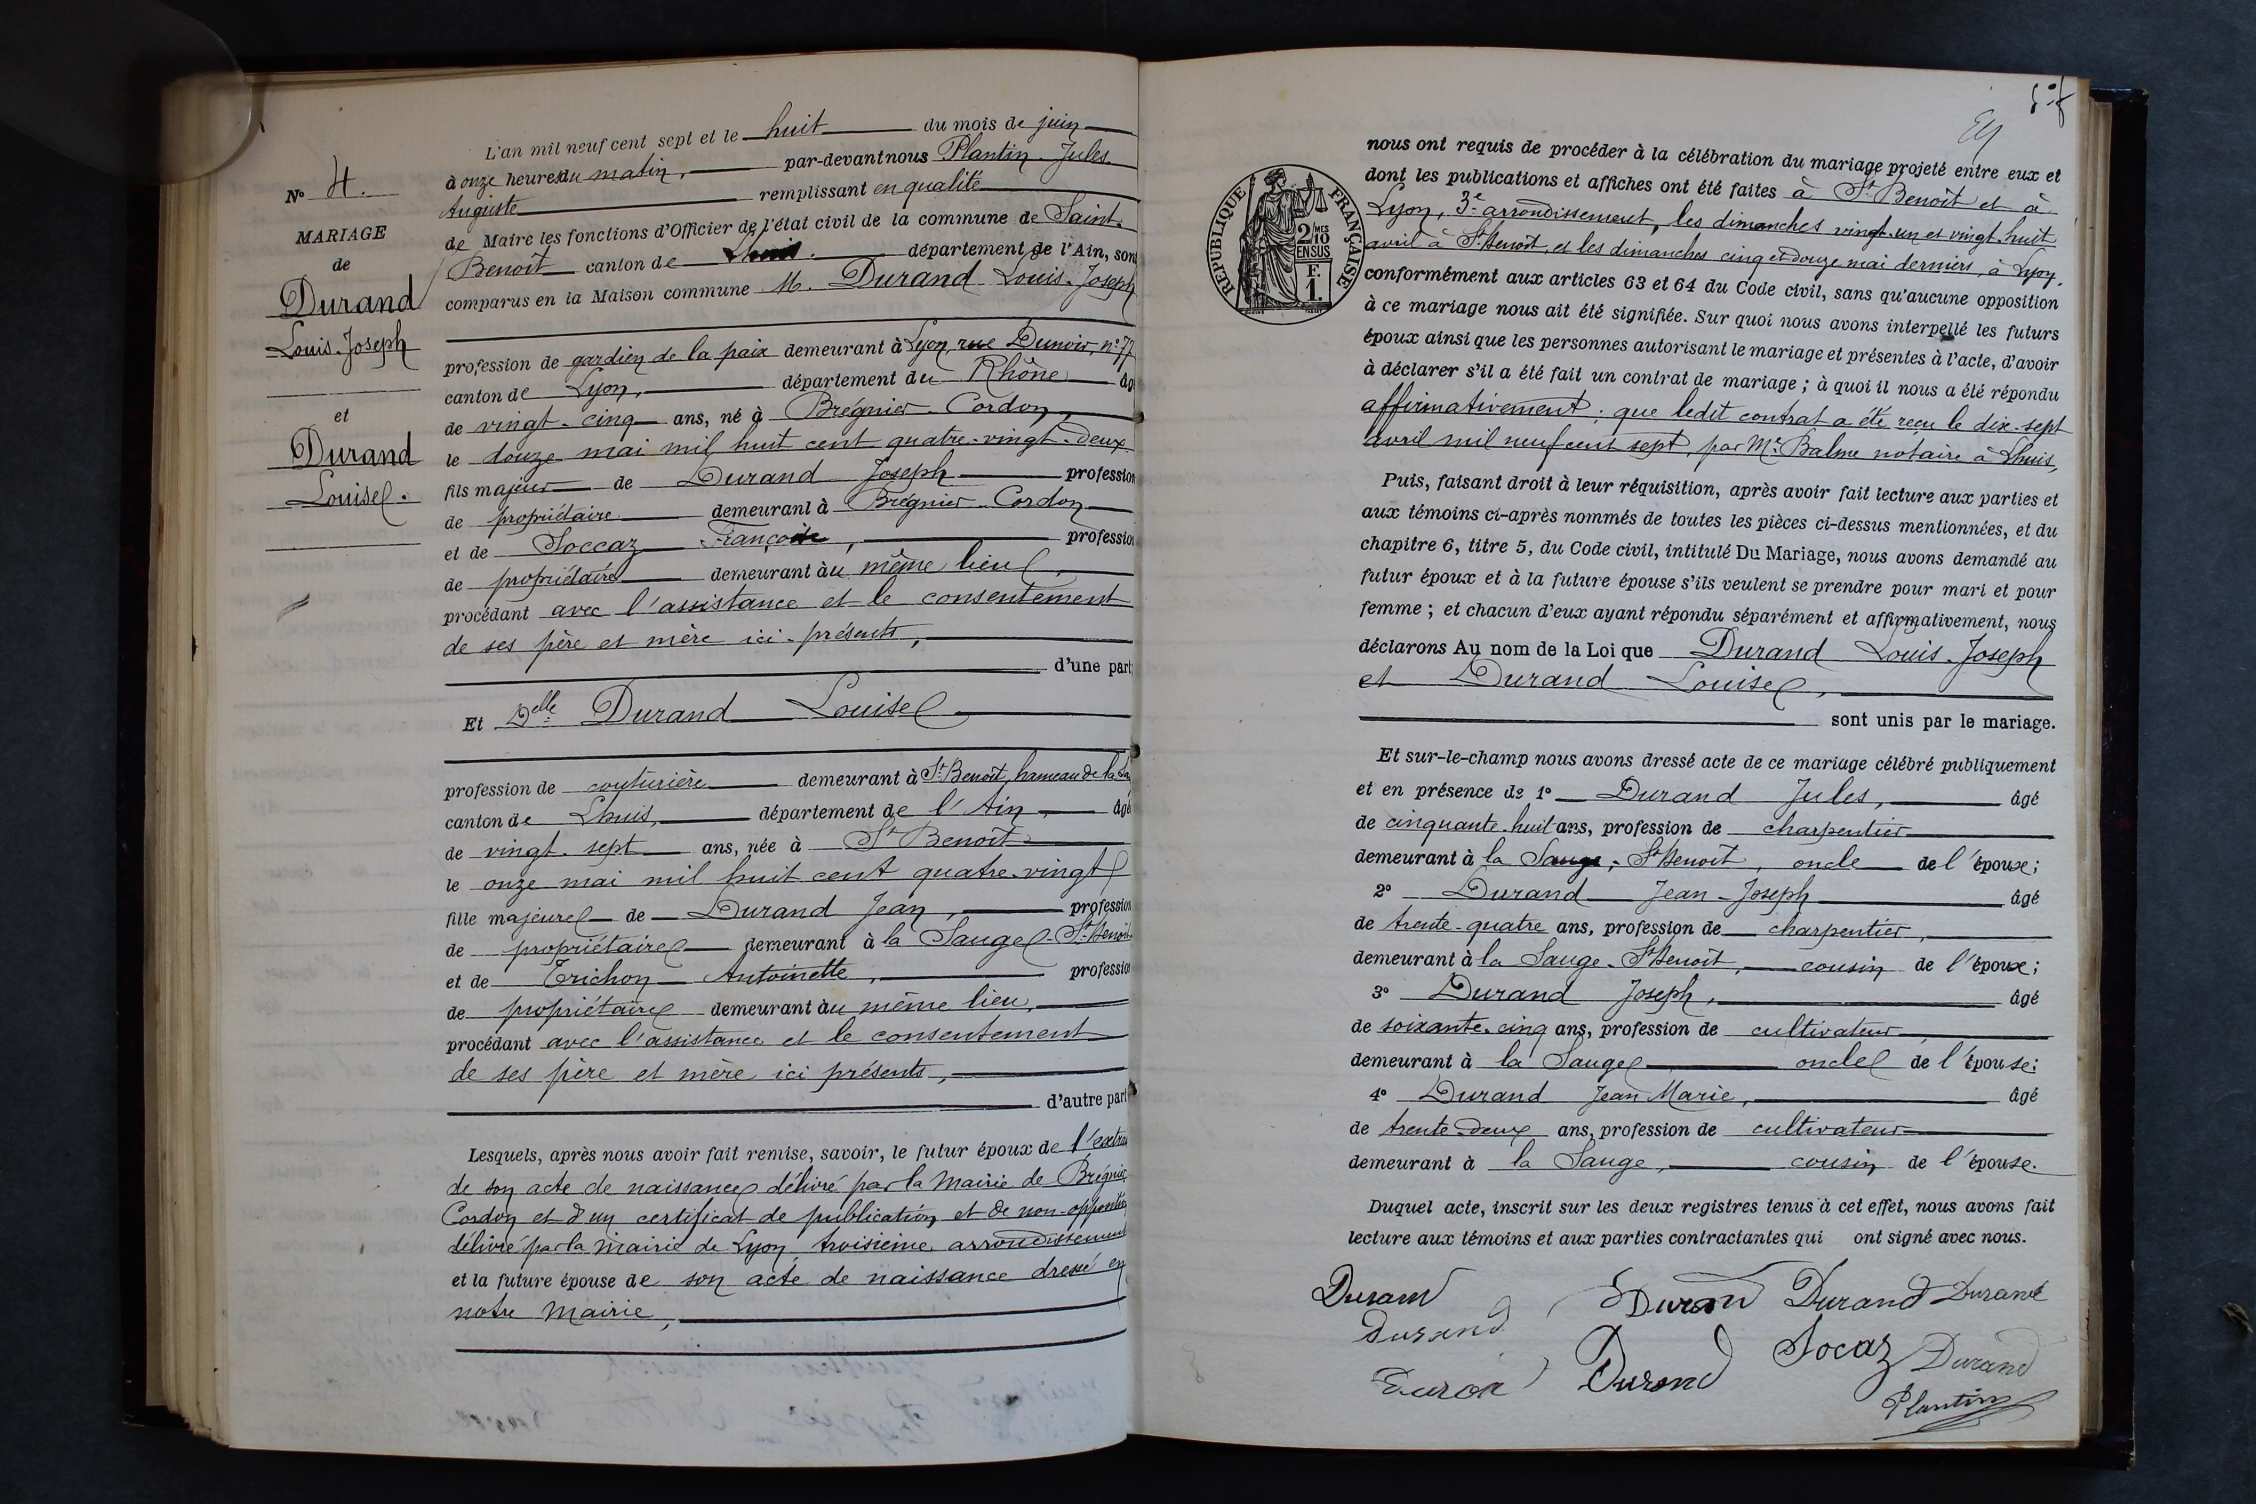 N° 4.
MARIAGE
de
Durand
Louis-Joseph
et
Durand
Louise.
L'an mil neuf cent sept et le huit du mois de juin
à onze heures du matin, par-devant nous Plantin Jules
Auguste remplissant en qualité
de Maire les fonctions d'Officier de l'état civil de la commune de Saint-
Benoît canton de Lhuis. département de l'Ain, sont
comparus en la Maison commune M. Durand Louis-Joseph
profession de gardien de la paix demeurant à Lyon, rue Dunoir, n° 77
canton de Lyon, département du Rhône âgé
de vingt-cinq ans, né à Brégnier-Cordon,
le douze mai mil huit cent quatre-vingt-deux
fils majeur de Durand Joseph profession
de propriétaire demeurant à Brégnier-Cordon
et de Soccaz Françoise, profession
de propriétaire demeurant au même lieu,
procédant avec l'assistance et le consentement
de ses père et mère ici-présents,
d'une part
Et Delle Durand Louise
profession de couturière demeurant à St Benoît, hameau de la
canton de Lhuis, département de l'Ain, âgé
de vingt-sept ans, née à St Benoît
le onze mai mil huit cent quatre-vingt
fille majeure de Durand Jean, profession
de propriétaire demeurant à la Sauge-St-Benoît
et de Trichon Antoinette, profession
de propriétaire demeurant au même lieu,
procédant avec l'assistance et le consentement
de ses père et mère ici présents,
d'autre part
Lesquels, après nous avoir fait remise, savoir, le futur époux de l'extrait
de son acte de naissance délivré par la Mairie de Brégnier
Cordon et d'un certificat de publication et de non-opposition
délivré par la Mairie de Lyon troisième arrondissement
et la future épouse de son acte de naissance dressé en
notre Mairie,
nous ont requis de procéder à la célébration du mariage projeté entre eux et
dont les publications et affiches ont été faites à St Benoît et à
Lyon, 3e arrondissement, les dimanches vingt-un et vingt-huit
avril à St Benoît, et les dimanches cinq et douze mai derniers, à Lyon,
conformément aux articles 63 et 64 du Code civil, sans qu'aucune opposition
à ce mariage nous ait été signifiée. Sur quoi nous avons interpellé les futurs
époux ainsi que les personnes autorisant le mariage et présentes à l'acte, d'avoir
à déclarer s'il a été fait un contrat de mariage ; à quoi il nous a été répondu
affirmativement ; que ledit contrat a été reçu le dix-sept
avril mil neuf cent sept, par Me Balme notaire à Lhuis,
Puis, faisant droit à leur réquisition, après avoir fait lecture aux parties et
aux témoins ci-après nommés de toutes les pièces ci-dessus mentionnées, et du
chapitre 6, titre 5, du Code civil, intitulé Du Mariage, nous avons demandé au
futur époux et à la future épouse s'ils veulent se prendre pour mari et pour
femme ; et chacun d'eux ayant répondu séparément et affirmativement, nous
déclarons Au nom de la Loi que Durand Louis-Joseph
et Durand Louise,
sont unis par le mariage.
Et sur-le-champ nous avons dressé acte de ce mariage célébré publiquement
et en présence de 1° Durand Jules, âgé
de cinquante-huit ans, profession de charpentier
demeurant à la Sauge, St Benoît, oncle de l'épouse ;
2° Durand Jean-Joseph âgé
de trente-quatre ans, profession de charpentier,
demeurant à la Sauge-St Benoît, cousin de l'époux ;
3° Durand Joseph, âgé
de soixante-cinq ans, profession de cultivateur,
demeurant à la Sauge oncle de l'épouse ;
4° Durand Jean Marie, âgé
de trente-deux ans, profession de cultivateur
demeurant à la Sauge, cousin de l'épouse.
Duquel acte, inscrit sur les deux registres tenus à cet effet, nous avons fait
lecture aux témoins et aux parties contractantes qui ont signé avec nous.
Durand Durand Durand Durand
Durand
Durand Socaz Durand
Plantin
RÉPUBLIQUE FRANÇAISE
2/10 MES
EN SUS
F.
1.